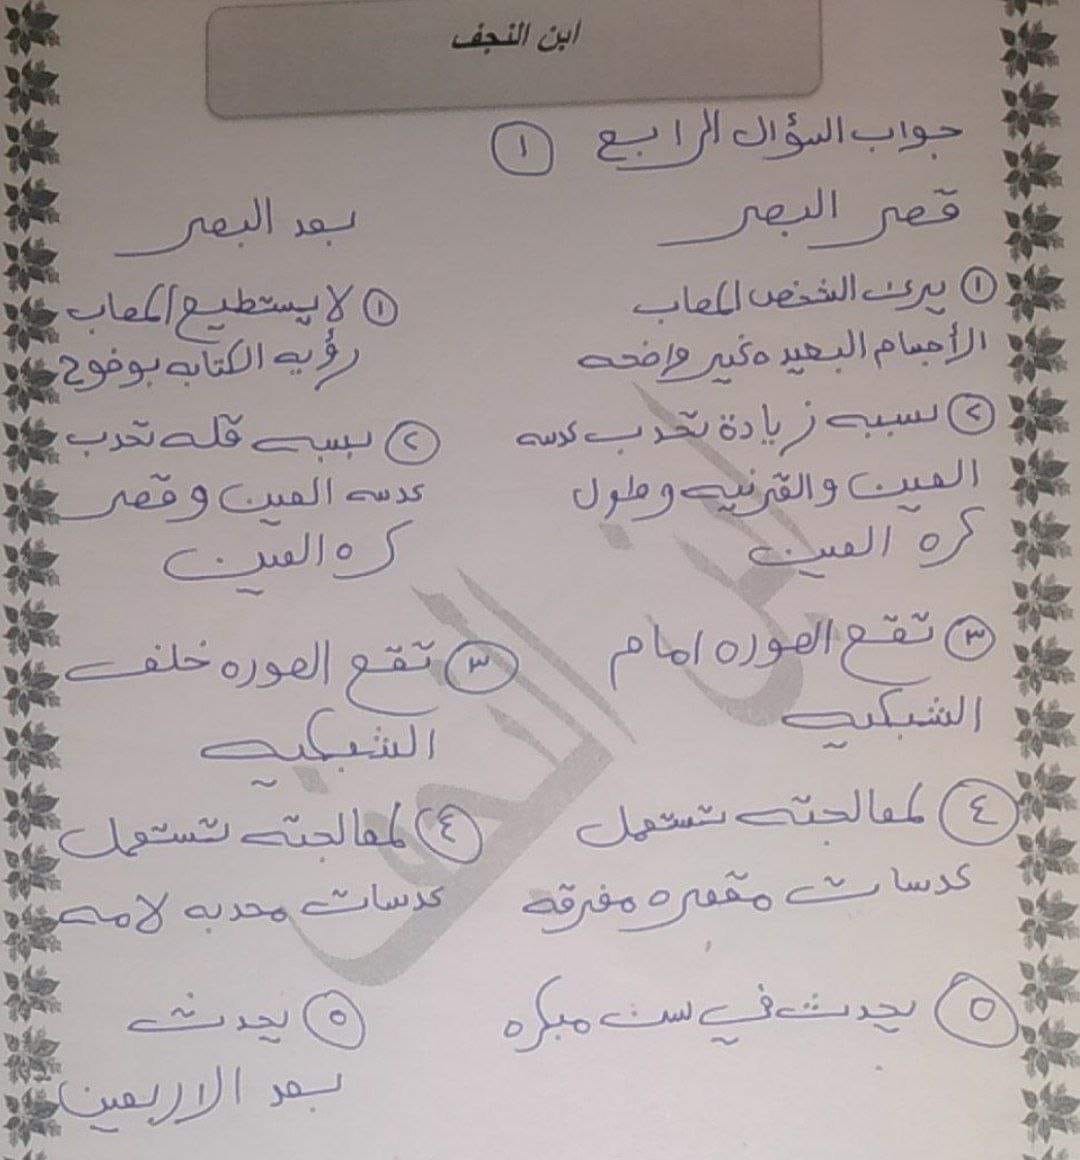 ابن النجف
جواب السؤال الرابع ①
قصر البصر
① يرى الشخص المصاب
الأجسام البعيده غير واضحه
② بسببه زيادة تحدب عدسه
العين والقرنيه وطول
كره العين
③ تقع الصوره امام
الشبكيه
④ لمعالجته تستعمل
عدسات مقعره مفرقه
⑤ يحدث في سن مبكره
بعد البصر
① لا يستطيع المصاب
رؤيه الكتابه بوضوح
② بسبب قله تحدب
عدسه العين وقصر
كره العين
③ تقع الصوره خلف
الشبكيه
④ لمعالجته تستعمل
عدسات محدبه لامه
⑤ يحدث
بعد الاربعين
ابن النجف